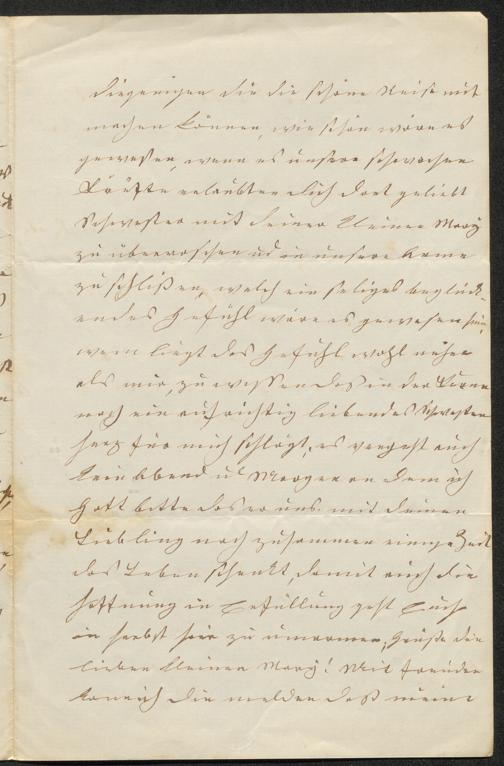 diejenigen die die schöne Reise mit
machen können, wie schön wäre es
gewesen, wenn es unsere schwachen
Kräfte erlaubten dich dort geliebt
Schwester mit deiner kleinen Mary
zu überraschen ud in unsere Arme
zu schlißen, welch ein seliges beglück-
endes Gefühl wäre es gewesen
wem liegt das Gefühl wohl näher
als mir, zu wissen das in der Ferne
noch ein aufrichtig liebendes Schwester
herz für mich schlägt, es vergeht auch
kein Abend ud Morgen an dem ich
Gott bitte das er uns mit deinem
Liebling noch zusammen einige Zeit
das Leben schenkt, damit auch die
Hoffnung in Erfüllung geht Euch
im herbst hier zu umarmen, Grüße die
lieben kleinen Mary! Mit Freuden
kann ich dir melden daß meine